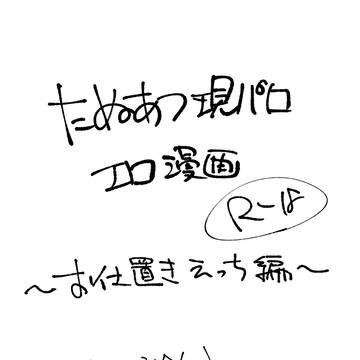 たぬあつ現パロ
エロ漫画
R-18
～お仕置きえっち編～